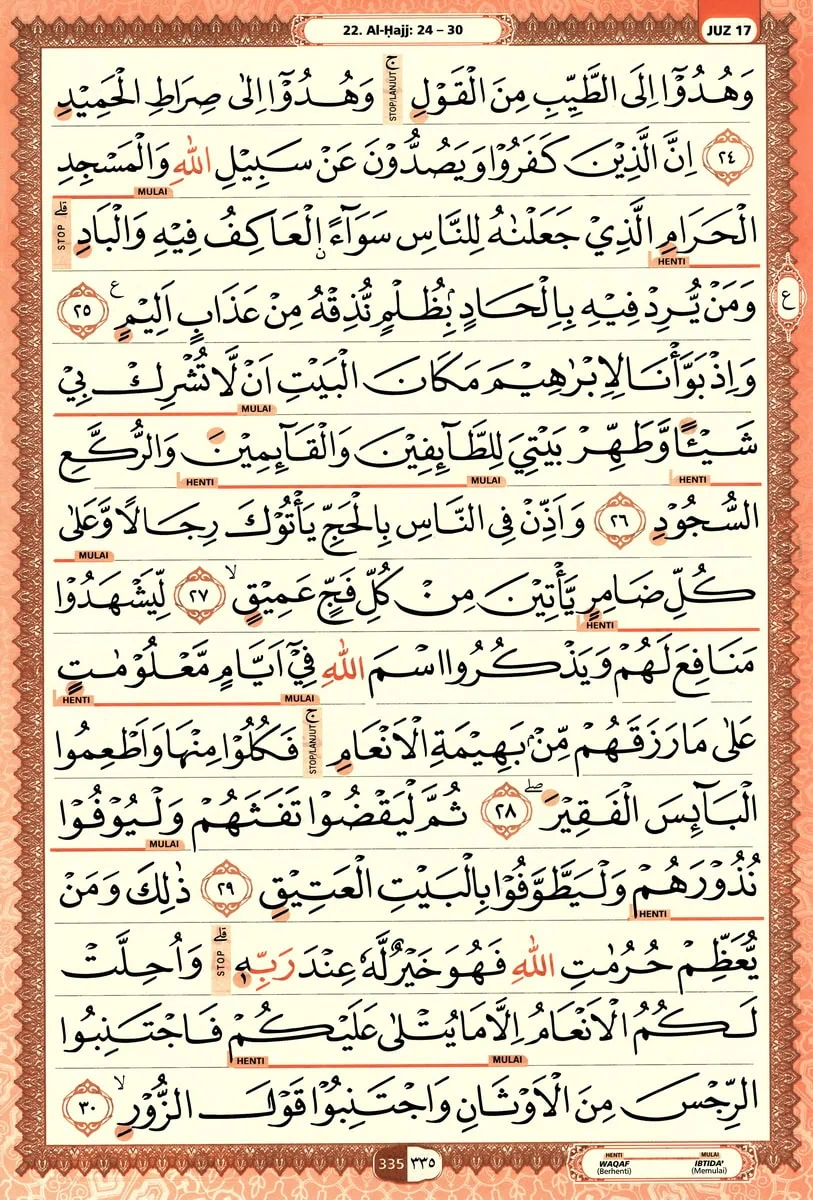 22. Al-Ḥajj: 24 – 30
JUZ 17
وَهُدُوْٓا اِلَى الطَّيِّبِ مِنَ الْقَوْلِ ۚ STOP/LANJUT وَهُدُوْٓا اِلٰى صِرَاطِ الْحَمِيْدِ
٢٤ اِنَّ الَّذِيْنَ كَفَرُوْا وَيَصُدُّوْنَ عَنْ سَبِيْلِ اللّٰهِ وَالْمَسْجِدِ
MULAI
الْحَرَامِ الَّذِيْ جَعَلْنٰهُ لِلنَّاسِ سَوَاۤءً ۨالْعَاكِفُ فِيْهِ وَالْبَادِ ۗ STOP
HENTI
وَمَنْ يُّرِدْ فِيْهِ بِاِلْحَادٍۢ بِظُلْمٍ نُّذِقْهُ مِنْ عَذَابٍ اَلِيْمٍ ࣖ ٢٥
ع
وَاِذْ بَوَّأْنَا لِاِبْرٰهِيْمَ مَكَانَ الْبَيْتِ اَنْ لَّا تُشْرِكْ بِيْ
MULAI
شَيْـًٔا وَّطَهِّرْ بَيْتِيَ لِلطَّاۤىِٕفِيْنَ وَالْقَاۤىِٕمِيْنَ وَالرُّكَّعِ
HENTI MULAI HENTI
السُّجُوْدِ ٢٦ وَاَذِّنْ فِى النَّاسِ بِالْحَجِّ يَأْتُوْكَ رِجَالًا وَّعَلٰى
MULAI
كُلِّ ضَامِرٍ يَّأْتِيْنَ مِنْ كُلِّ فَجٍّ عَمِيْقٍ ۙ ٢٧ لِّيَشْهَدُوْا
HENTI
مَنَافِعَ لَهُمْ وَيَذْكُرُوا اسْمَ اللّٰهِ فِيْٓ اَيَّامٍ مَّعْلُوْمٰتٍ
MULAI HENTI
عَلٰى مَا رَزَقَهُمْ مِّنْۢ بَهِيْمَةِ الْاَنْعَامِ ۚ STOP/LANJUT فَكُلُوْا مِنْهَا وَاَطْعِمُوا
الْبَاۤىِٕسَ الْفَقِيْرَ ۖ ٢٨ ثُمَّ لْيَقْضُوْا تَفَثَهُمْ وَلْيُوْفُوْا
MULAI
نُذُوْرَهُمْ وَلْيَطَّوَّفُوْا بِالْبَيْتِ الْعَتِيْقِ ٢٩ ذٰلِكَ وَمَنْ
HENTI
يُّعَظِّمْ حُرُمٰتِ اللّٰهِ فَهُوَ خَيْرٌ لَّهٗ عِنْدَ رَبِّهٖ ۗ STOP وَاُحِلَّتْ
لَكُمُ الْاَنْعَامُ اِلَّا مَا يُتْلٰى عَلَيْكُمْ فَاجْتَنِبُوا
MULAI HENTI
الرِّجْسَ مِنَ الْاَوْثَانِ وَاجْتَنِبُوْا قَوْلَ الزُّوْرِ ۙ ٣٠
335 ٣٣٥
HENTI WAQAF (Berhenti)
MULAI IBTIDA' (Memulai)